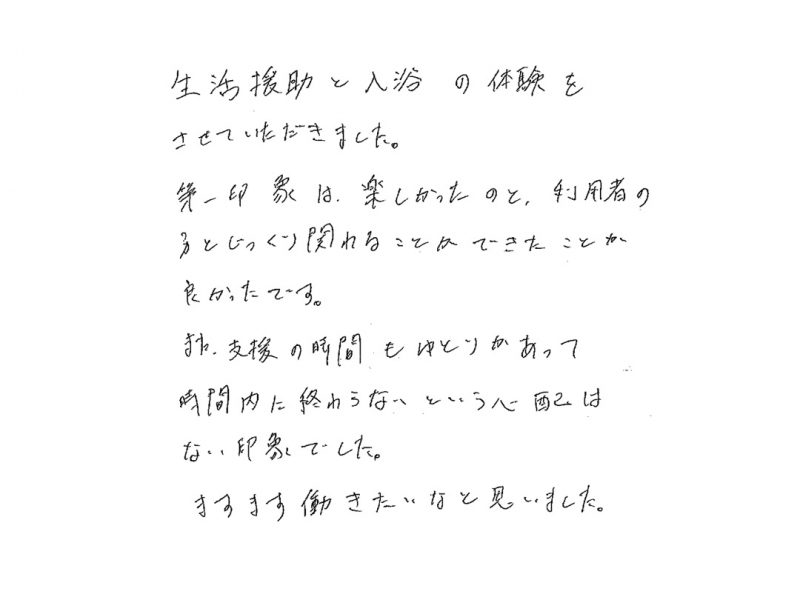 生活援助と入浴の体験を
させていただきました。
第一印象は、楽しかったのと、利用者の
方とじっくり関れることができたことが
良かったです。
また、支援の時間もゆとりがあって
時間内に終わらないという心配は
ない印象でした。
ますます働きたいなと思いました。